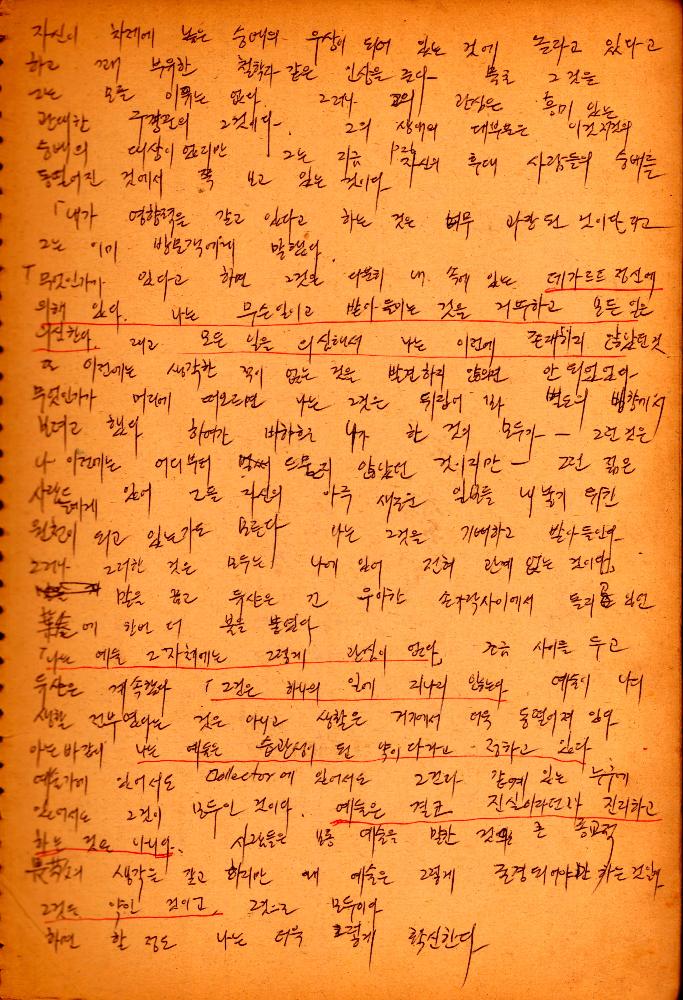 자신이 차례에 높은 숭배의 우상이 되어 있는 것에 놀라고 있다고
하고 꽤 부유한 철학과 같은 인상을 준다 목표 그것을
그는 모를 이유는 없다. 그러나 그의 관심은 흥미 있는
관대한 구경꾼의 그것이다. 그의 생애의 대부분은 이것저것의
숭배의 대상이었지만 그는 지금 자신의 후대 사람들의 숭배를
동떨어진 것에서 쭉 보고 있는 것이다
「내가 영향력을 갖고 있다고 하는 것은 너무 과장된 것이다」라고
그는 이미 방문객에게 말했다.
「무엇인가가 있다고 하면 그것은 다분히 내 속에 있는 데가르트 정신에
의해 있다. 나는 무슨일이고 받아들이는 것을 거부하고 모든일은
의심한다. 그리고 모든 일을 의심해서 나는 이전에 존재하지 않았던 것
또 이전에는 생각한 적이 없는 것을 발견하지 않으면 안 되었었다.
무엇인가가 머리에 떠오르면 나는 그것은 뒤집어 그와 별도의 방향에서
보려고 했다 하여간 바하흐로 내가 한 것의 모두가 — 그런 것은
나 이전에는 어디부터 벌써 드물지 않았던 것이지만 — 그런 젊은
사람들에게 있어 그들 자신의 아주 새로운 일들을 내놓기 위한
원천이 되고 있는가도 모른다 나는 그것을 기뻐하고 받아들인다.
그러나 그러한 것은 모두는 나에 있어 전혀 관계 없는 것이다」
말을 끊고 듀샨은 긴 우아한 손가락사이에서 돌리고 있던
葉송에 한번 더 불을 붙였다
「나는 예술 그 자체에는 그렇게 관심이 없다, 조금 사이를 두고
듀샨은 계속했다 「그것은 하나의 일에 지나지 않는다. 예술이 나의
생활 전부였다는 것은 아니고 생활은 거기에서 더욱 동떨어져 있다.
아는바같이 나는 예술은 습관성이 된 약이다라고 정하고 있다
예술가에 있어서도 Collector에 있어서도 그런다 같게 있는 누구에
있어서도 그것이 모두인 것이다. 예술은 결코 진실이라던가 진리하고
하는 것은 아니다. 사람들은 보통 예술을 말한 것을 큰 종교적
생각을 갖고 하지만 왜 예술은 그렇게 존경되어야만 하는것일까
그것은 약인 것이고, 그것으로 모두이다
하면 할 정도 나는 더욱 그렇게 확신한다